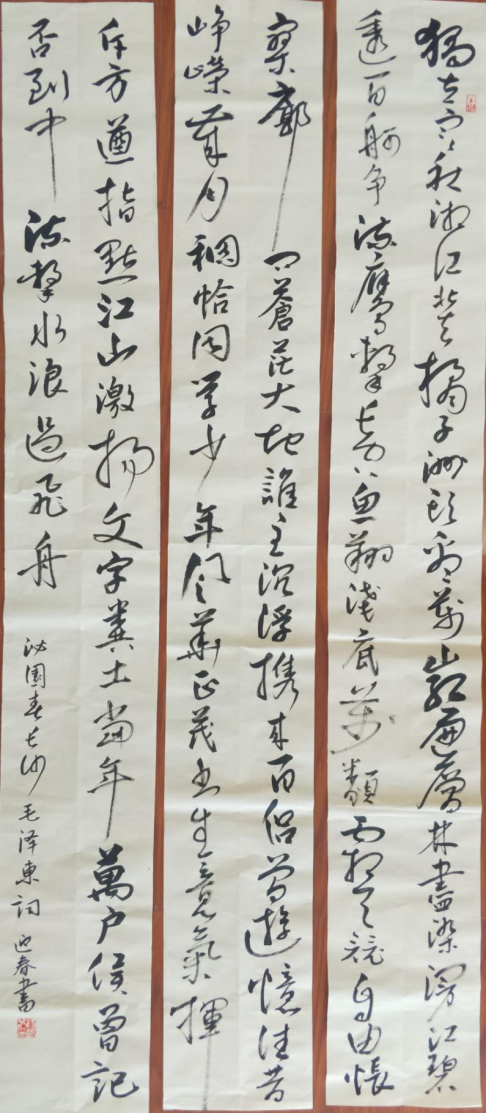 獨立寒秋湘江北去橘子洲头看萬山红遍層林盡染漫江碧
透百舸争流鷹擊长空鱼翔淺底萬類霜天競自由悵
寥廓问蒼茫大地誰主沉浮携来百侣曾遊憶往昔
峥嵘嵗月稠恰同学少年风華正茂书生意氣揮
斥方遒指點江山激揚文字糞土當年萬户侯曾記
否到中流擊水浪遏飞舟
沁園春长沙 毛泽東詞 迎春書